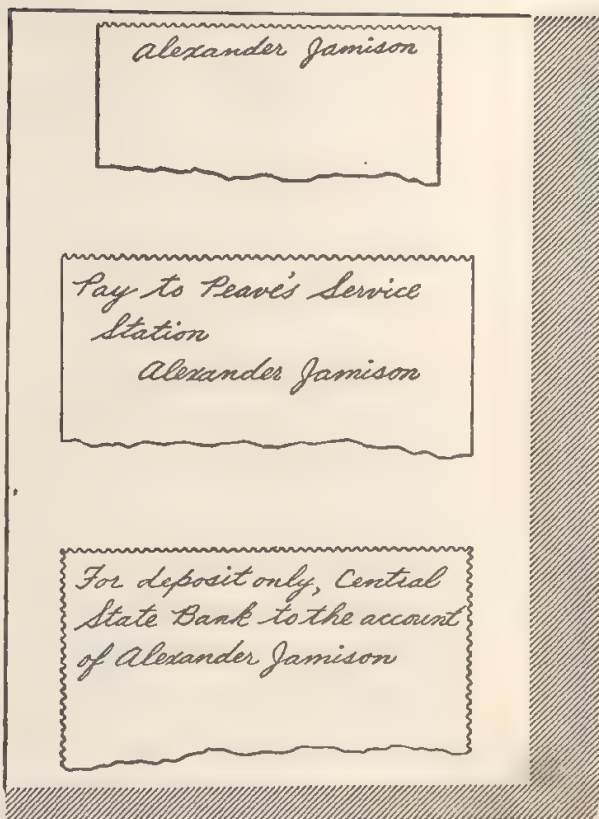 Alexander Jamison
Pay to Peave's Service
Station
Alexander Jamison
For deposit only, Central
State Bank to the account
of Alexander Jamison